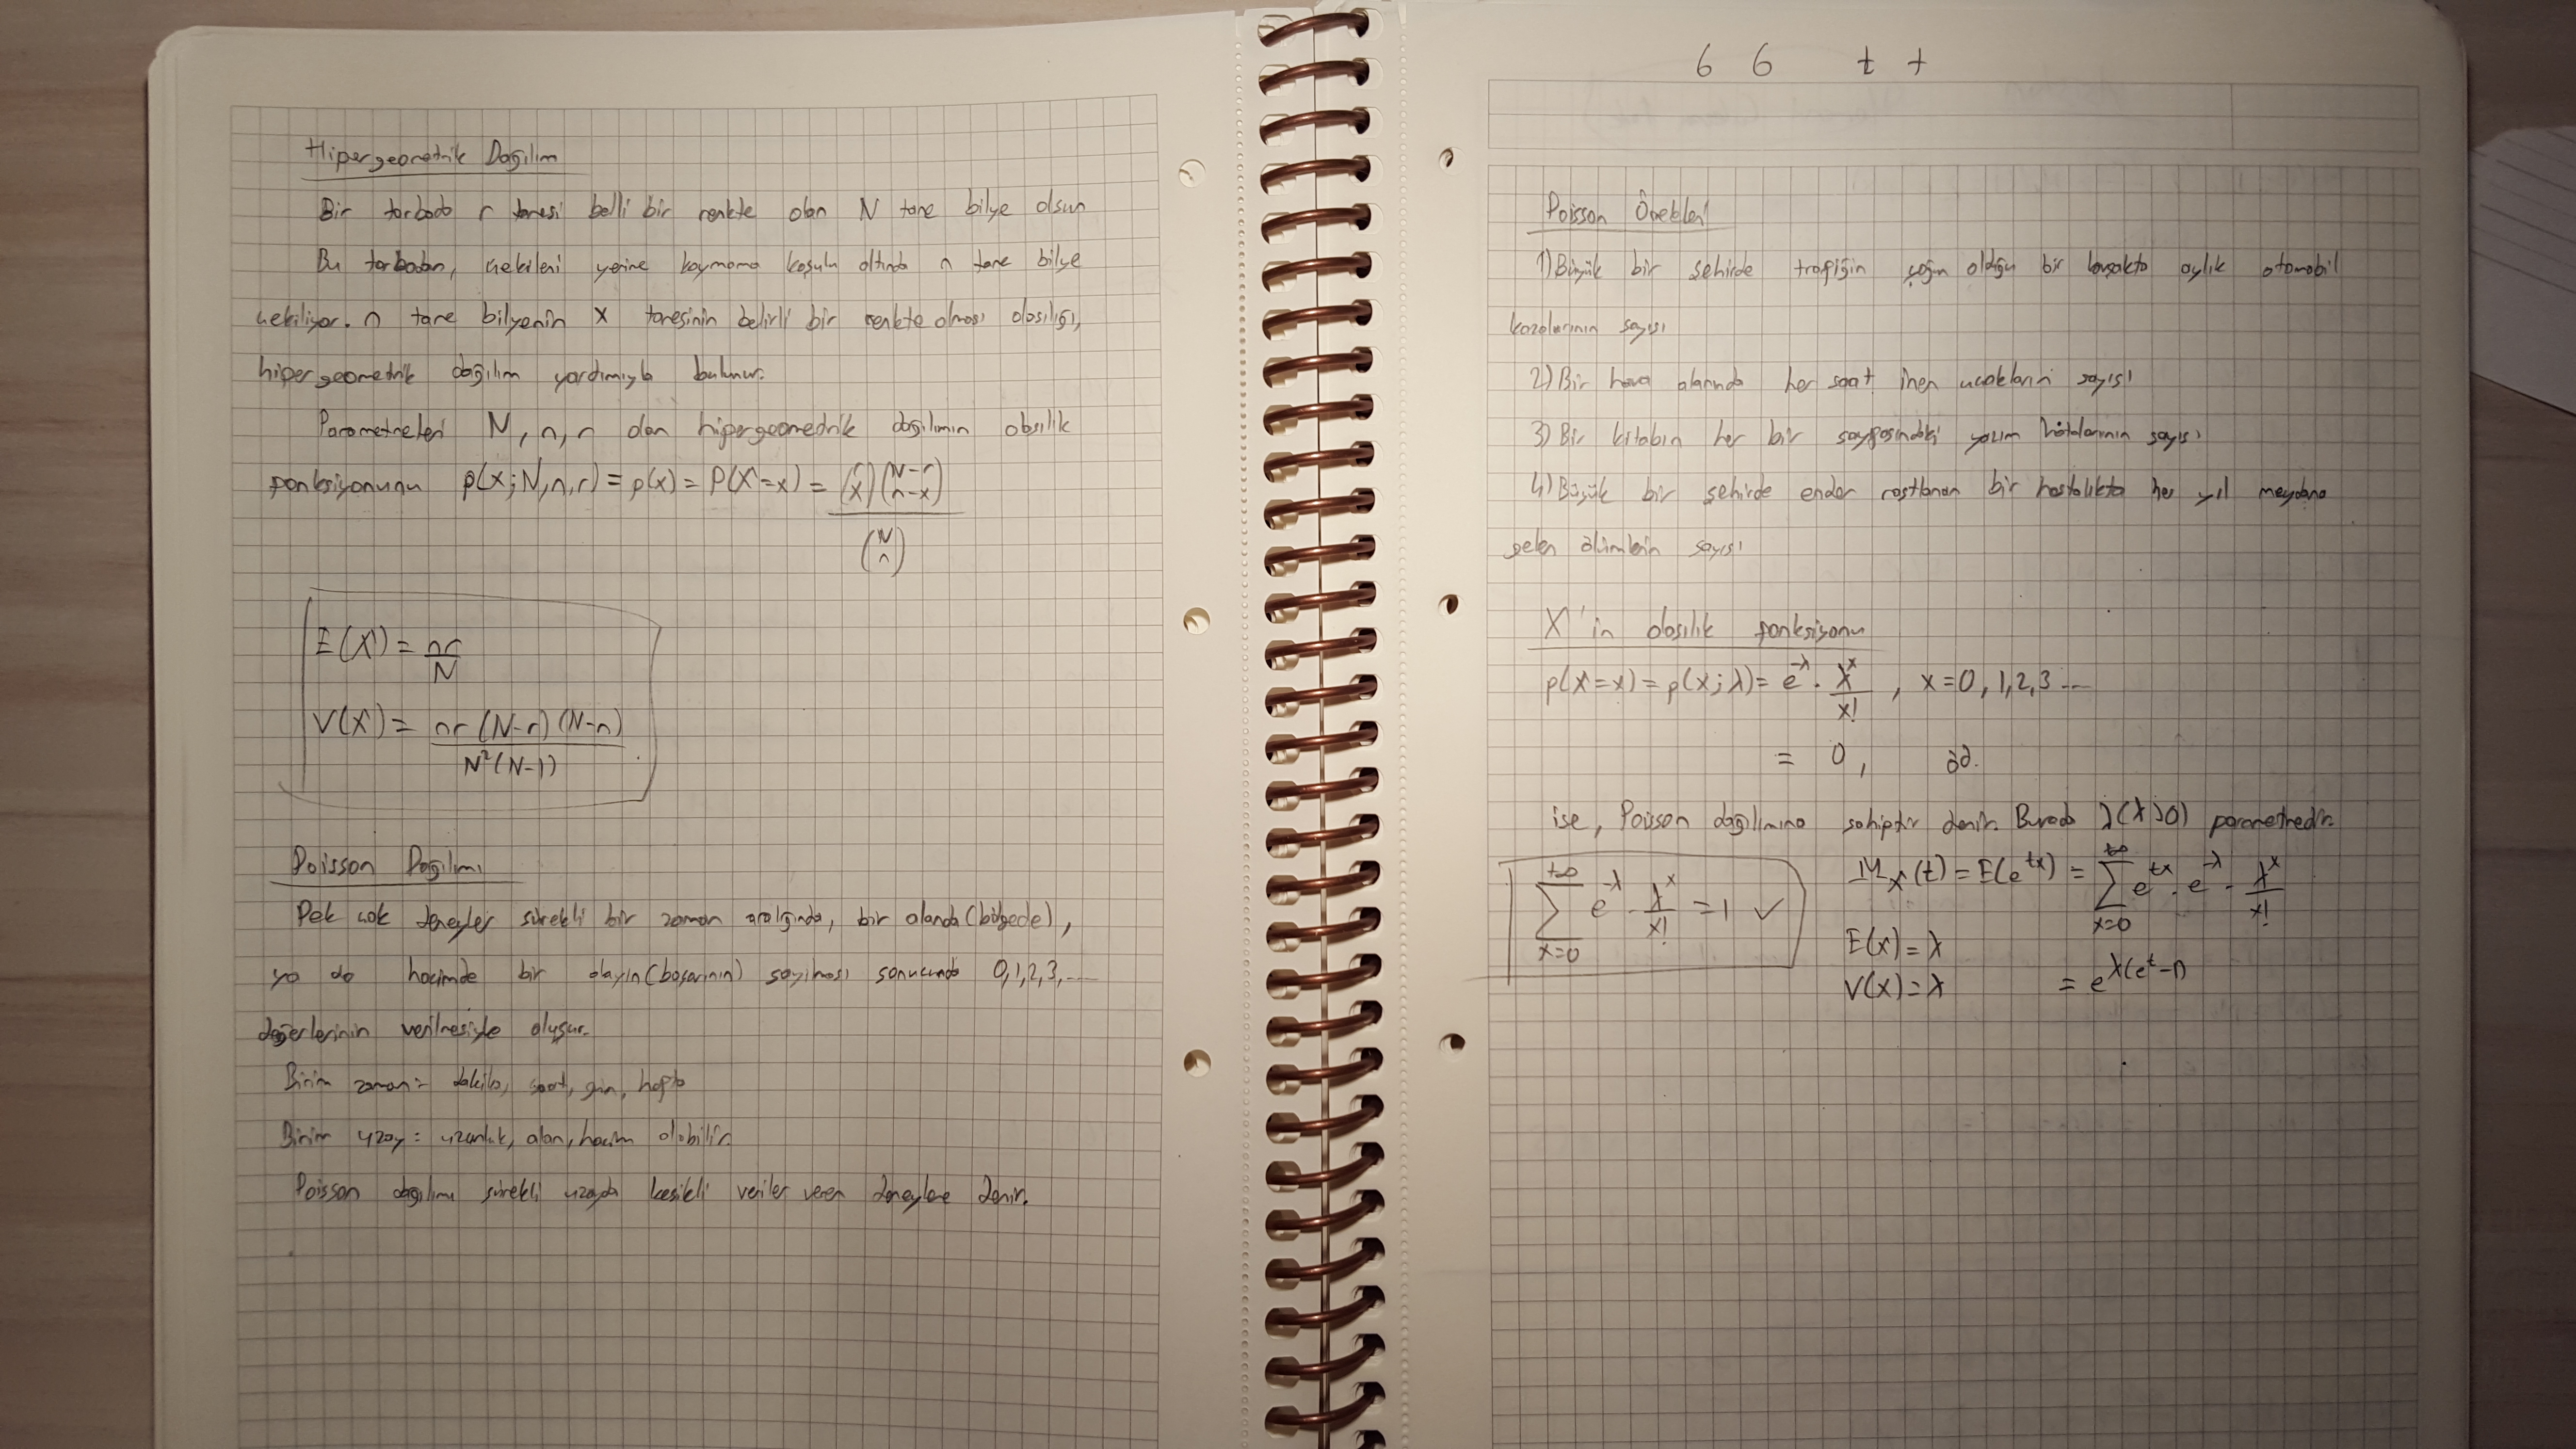 Hipergeometrik Dağılım
Bir torbada r tanesi belli bir renkte olan N tane bilye olsun
Bu torbadan, çekileni yerine koymama koşulu altında n tane bilye
çekiliyor. n tane bilyenin x tanesinin belirli bir renkte olması olasılığı,
hipergeometrik dağılım yardımıyla bulunur.
Parametreleri N, n, r olan hipergeometrik dağılımın olasılık
fonksiyonunu p(x; N, n, r) = p(x) = P(X=x) = (r x)(N-r n-x) / (N n)
E(X) = nr/N
V(X) = nr(N-r)(N-n) / N²(N-1)
Poisson Dağılımı
Pek çok deneyler sürekli bir zaman aralığında, bir alanda (bölgede),
ya da hacimde bir olayın (başarının) sayılması sonucunda 0,1,2,3,....
değerlerinin verilmesiyle oluşur.
Birim zaman = dakika, saat, gün, hafta
Birim uzay = uzunluk, alan, hacim olabilir.
Poisson dağılımı sürekli uzayda kesikli veriler veren deneylere denir.
6 6 t t
Poisson Örnekleri
1) Büyük bir şehirde trafiğin yoğun olduğu bir kavşakta aylık otomobil
kazalarının sayısı
2) Bir hava alanında her saat inen uçakların sayısı
3) Bir kitabın her bir sayfasındaki yazım hatalarının sayısı
4) Büyük bir şehirde ender rastlanan bir hastalıkta her yıl meydana
gelen ölümlerin sayısı
X'in olasılık fonksiyonu
p(X=x) = p(x; λ) = e^-λ . λ^x / x! , x=0, 1, 2, 3 ....
= 0, öd.
ise, Poisson dağılımına sahiptir denir. Burada λ (λ>0) parametredir.
∑ x=0 +∞ e^-λ . λ^x / x! = 1 ✓
M_X(t) = E(e^tx) = ∑ x=0 +∞ e^tx . e^-λ . λ^x / x!
E(x) = λ
V(x) = λ = e^λ(e^t-1)